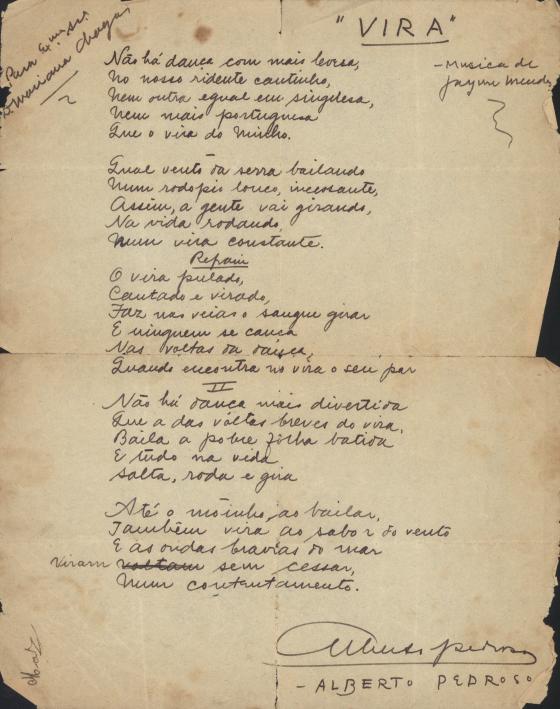 "VIRA"
Para Ex.ma Sr.
D. Mariana Chagas
- Musica de
Jayme Mendes
Não há dança com mais levesa,
No nosso ridente cantinho,
Nem outra egual em singelesa,
Nem mais portuguesa
Que o vira do Minho.
Qual vento da serra bailando
Num rodopio louco, incessante,
Assim, a gente vai girando,
Na vida rodando,
Num vira constante.
Refrain
O vira pulado,
Cantado e virado,
Faz nas veias o sangue girar
E ninguem se cança
Nas voltas da dança,
Quando encontra no vira o seu par
II
Não há dança mais divertida
Que a das vóltas breves do vira,
Baila a pobre folha batida
E tudo na vida
Salta, roda e gira
Até o moinho, ao bailar,
Também vira ao sabor do vento
E as ondas bravias do mar
Viram voltam sem cessar,
Num contentamento.
Alberto Pedroso
- ALBERTO PEDROSO